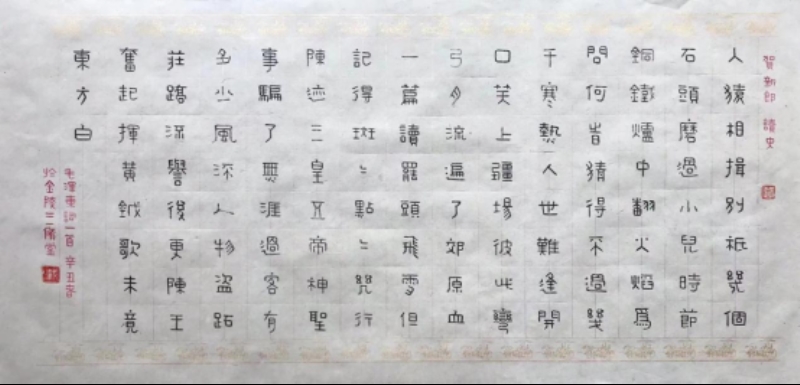 賀新郎 讀史
人猿相揖別祇幾個
石頭磨過小兒時節
銅鐵爐中翻火焰爲
問何時猜得不過幾
千寒熱人世難逢開
口笑上疆場彼此彎
弓月流遍了郊原血
一篇讀罷頭飛雪但
記得斑〻點〻幾行
陳迹三皇五帝神聖
事騙了無涯過客有
多少風流人物盜跖
莊蹻流譽後更陳王
奮起揮黃鉞歌未竟
東方白
毛澤東詞一首 辛丑春
於金陵三堂